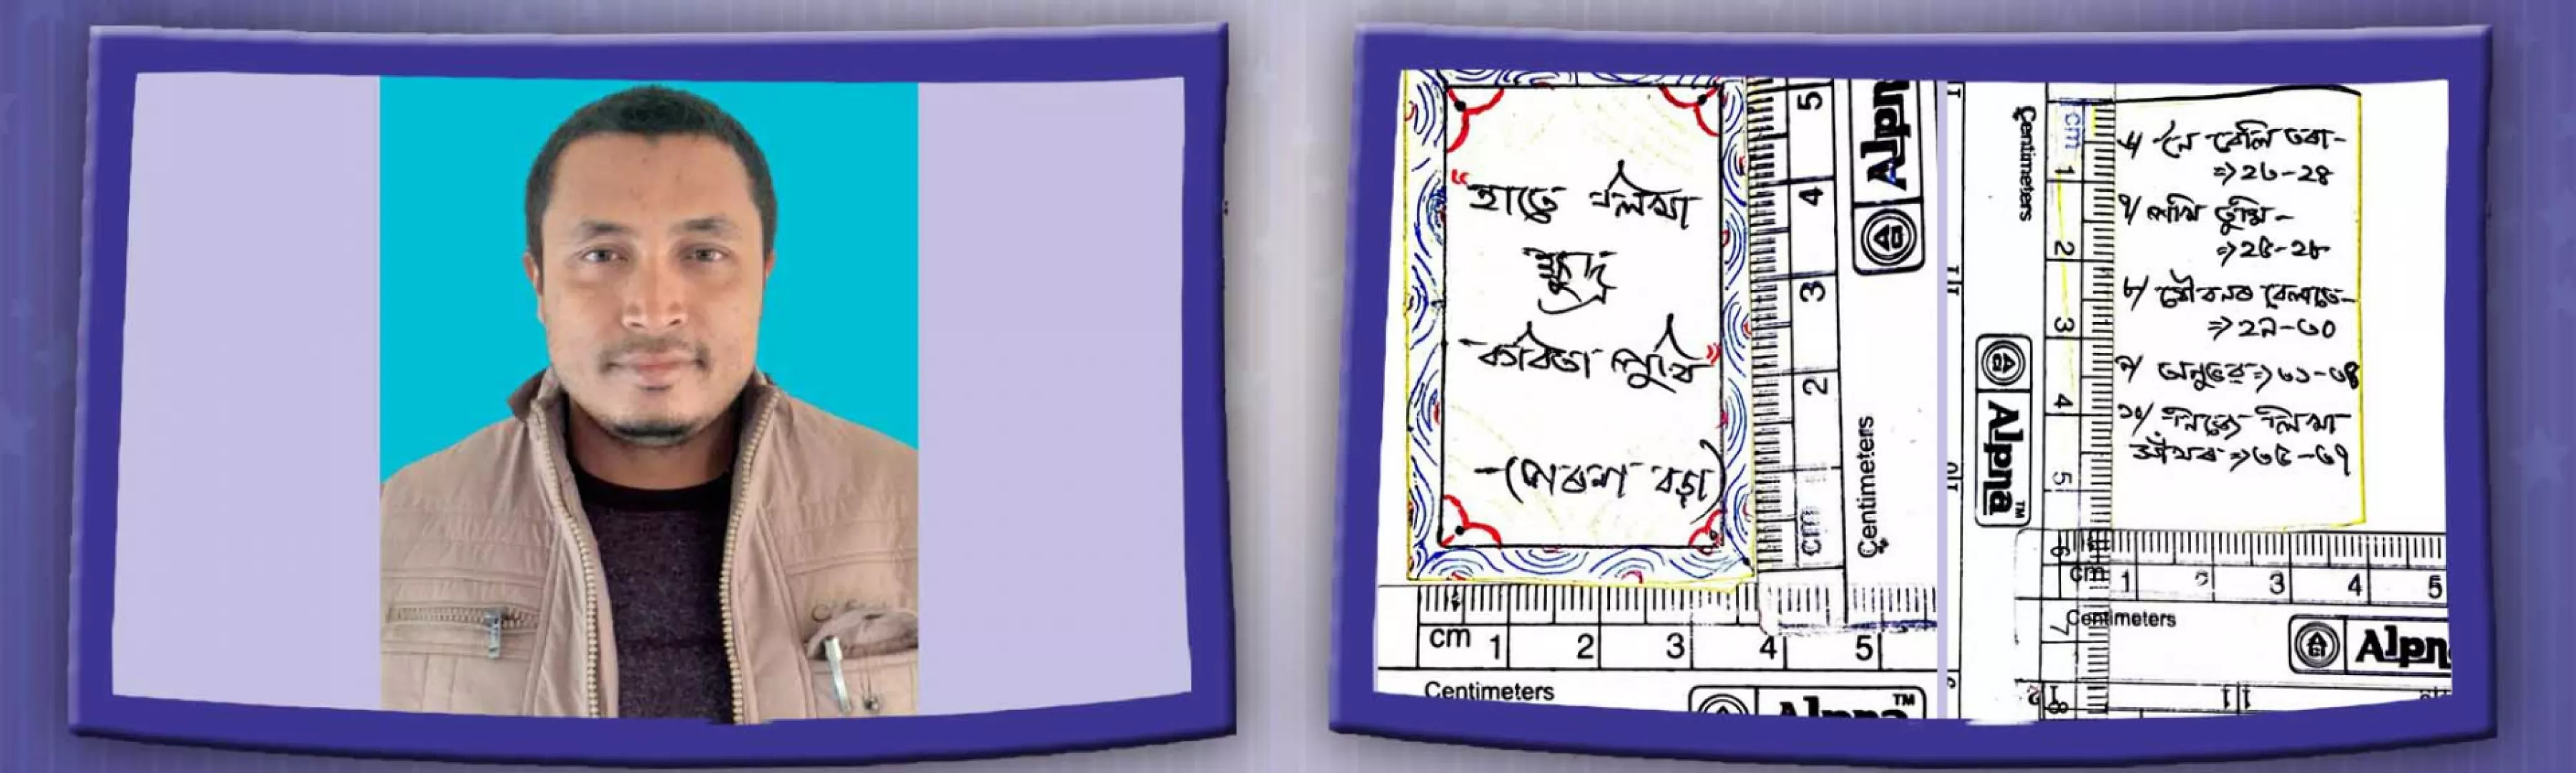 "হাতে লিখা
ক্ষুদ্ৰ
কবিতা পুথি"
-(পৰুশ বড়া)
5
4
3
2
cm
Centimeters
Alpna
cm 1 2 3 4 5
Centimeters
Alpna™
Centimeters
cm
1
2
3
4
5
6
7
8
Alpna™
৬/ নৈ বেলি তৰা-
=>২৩-২৪
৭/ আমি তুমি-
=>২৫-২৮
৮/ যৌৱনৰ বেলাতে-
=>২৯-৩০
৯/ অনুভৱ=>৩১-৩৪
১০/ নিজে লিখা
=>৩৫-৩৭
cm 1 2 3 4 5
Centimeters
Alpn